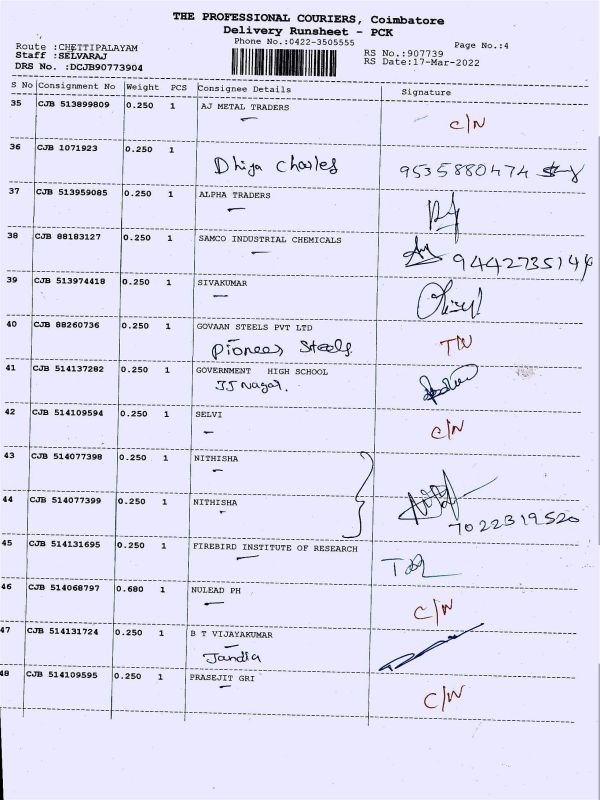 THE PROFESSIONAL COURIERS, Coimbatore
Delivery Runsheet - PCK
Phone No.:0422-3505555
Page No.:4
Route :CHETTIPALAYAM
RS No.:907739
Staff :SELVARAJ
RS Date:17-Mar-2022
DRS No. :DCJB90773904
S No Consignment No Weight PCS Consignee Details Signature
35 CJB 513899809 0.250 1 AJ METAL TRADERS
C/N
36 CJB 1071923 0.250 1
Dhiya Charles 9535880474
37 CJB 513959085 0.250 1 ALPHA TRADERS
38 CJB 88183127 0.250 1 SAMCO INDUSTRIAL CHEMICALS
9442735144
39 CJB 513974418 0.250 1 SIVAKUMAR
40 CJB 88260736 0.250 1 GOVAAN STEELS PVT LTD
Pioneer Steels. T/N
41 CJB 514137282 0.250 1 GOVERNMENT HIGH SCHOOL
JJ Nagar.
42 CJB 514109594 0.250 1 SELVI
C/N
43 CJB 514077398 0.250 1 NITHISHA
44 CJB 514077399 0.250 1 NITHISHA
7022319520
45 CJB 514131695 0.250 1 FIREBIRD INSTITUTE OF RESEARCH
46 CJB 514068797 0.680 1 NULEAD PH
C/N
47 CJB 514131724 0.250 1 B T VIJAYAKUMAR
Jandia
48 CJB 514109595 0.250 1 PRASEJIT GRI
C/N